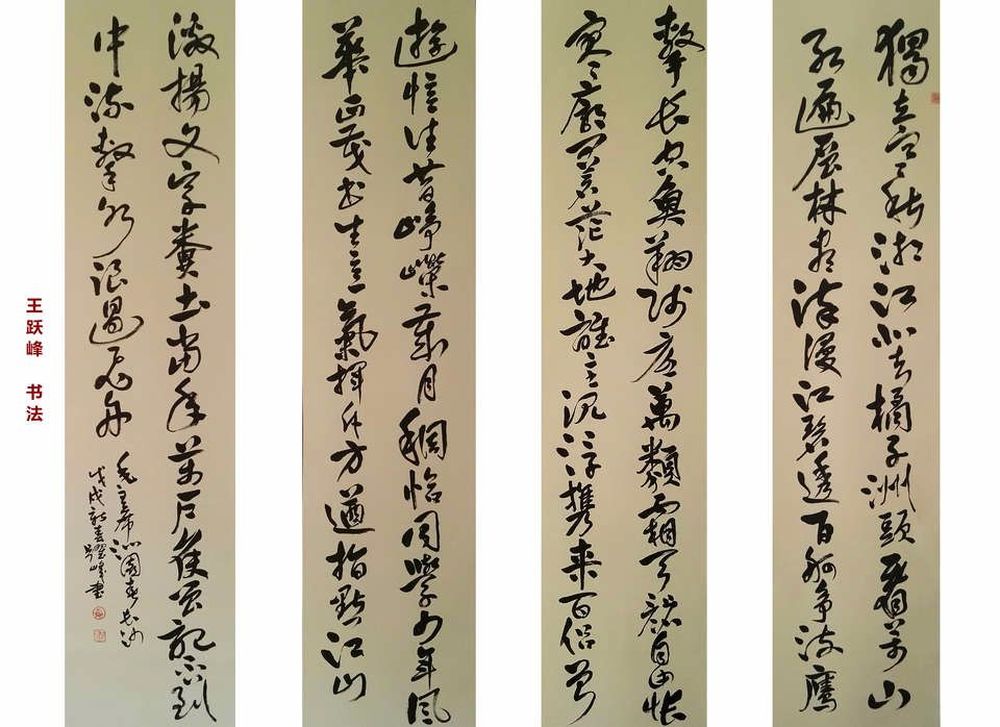 獨立寒秋湘江北去橘子洲頭看萬山
紅遍層林盡染漫江碧透百舸爭流鷹
擊長空魚翔淺底萬類霜天競自由悵
寥廓問蒼茫大地誰主沉浮携来百侣曾
遊憶往昔崢嶸歲月稠恰同學少年風
華正茂書生意氣揮斥方遒指點江山
激揚文字糞土當年萬戶侯曾記否到
中流擊水浪遏飛舟
毛主席沁園春長沙
戊戌新春躍峰書
王跃峰 书法